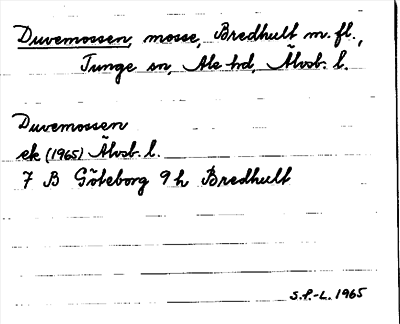 Duvemossen, mosse, Bredhult m. fl.,
Tunge sn, Ale hd, Älvsb. l.
Duvemossen
ek (1965) Älvsb. l.
7 B Göteborg 9 h Bredhult
S.P.-L. 1965